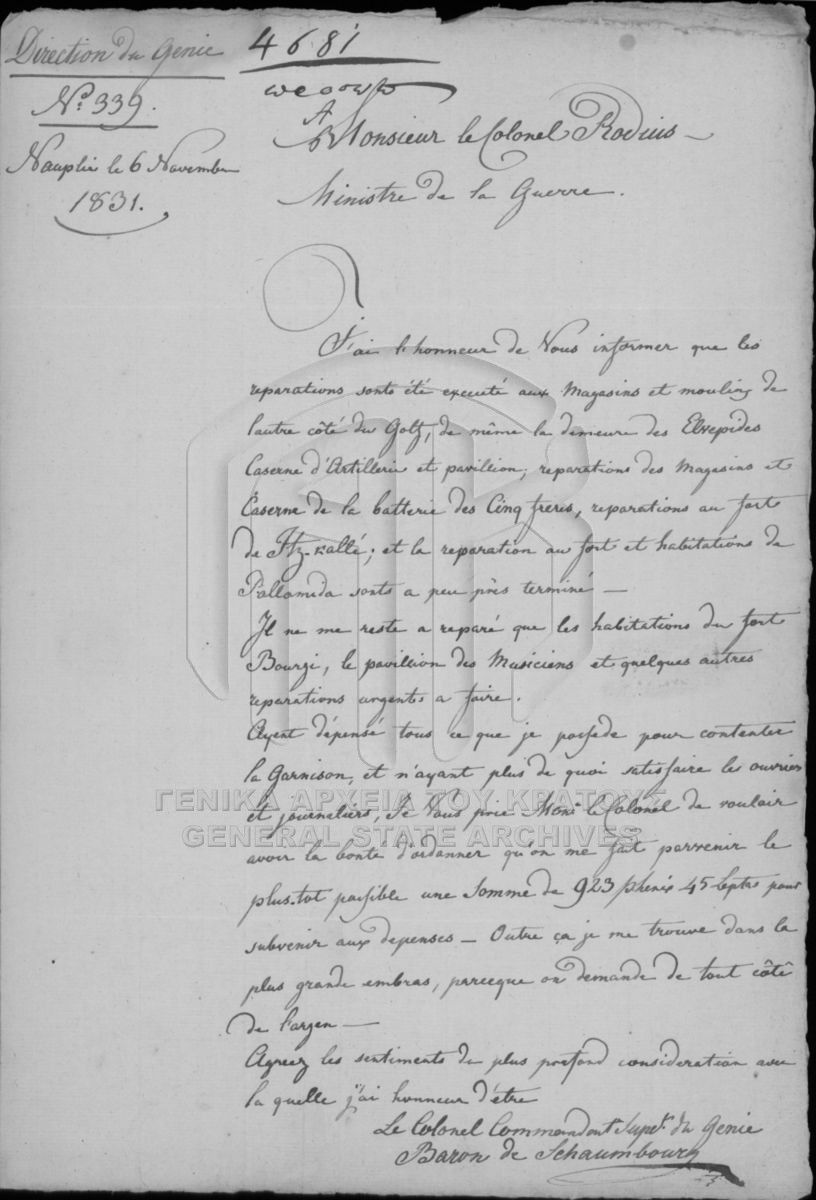 Direction du Genie
4681
Nº 339.
A
Monsieur le Colonel Rodius
Nauplie le 6 Novembre
1831.
Ministre de la Guerre.
J'ai l'honneur de Vous informer que les
reparations sonts été executé aux Magasins et mouling de
lautre côté du Golf, de même la demeure des Elvepides
Caserne d'Artillerie et pavillion; reparations des Magasins et
Caserne de la batterie des Cinq freres, reparations au fort
de Itz-kallé; et la reparation au fort et habitations de
Pallamida sonts a peu près terminé —
Il ne me reste a reparé que les habitations du fort
Bourgi, le pavillion des Musiciens et quelques autres
reparations urgents a faire.
Ayent dépensé tous ce que je possede pour contenter
la Garnison, et n'ayant plus de quoi satisfaire les ouvriers
et journaliers, Je Vous prie Monr le Colonel de vouloir
avoir la bonté d'ordanner qu'on me fait parvenir le
plus-tot possible une Somme de 923 phenix 45 leptes pour
subvenir aux depenses — Outre ça je me trouve dans la
plus grande embras, parceque on demande de tout côtê
de l'argen —
Agreez les sentiments du plus profond consideration avec
la quelle j'ai honneur d'être
Le Colonel Commandant Supr. du Genie
Baron de Schaumbourg
ΓΕΝΙΚΑ ΑΡΧΕΙΑ ΤΟΥ ΚΡΑΤΟΥΣ
GENERAL STATE ARCHIVES